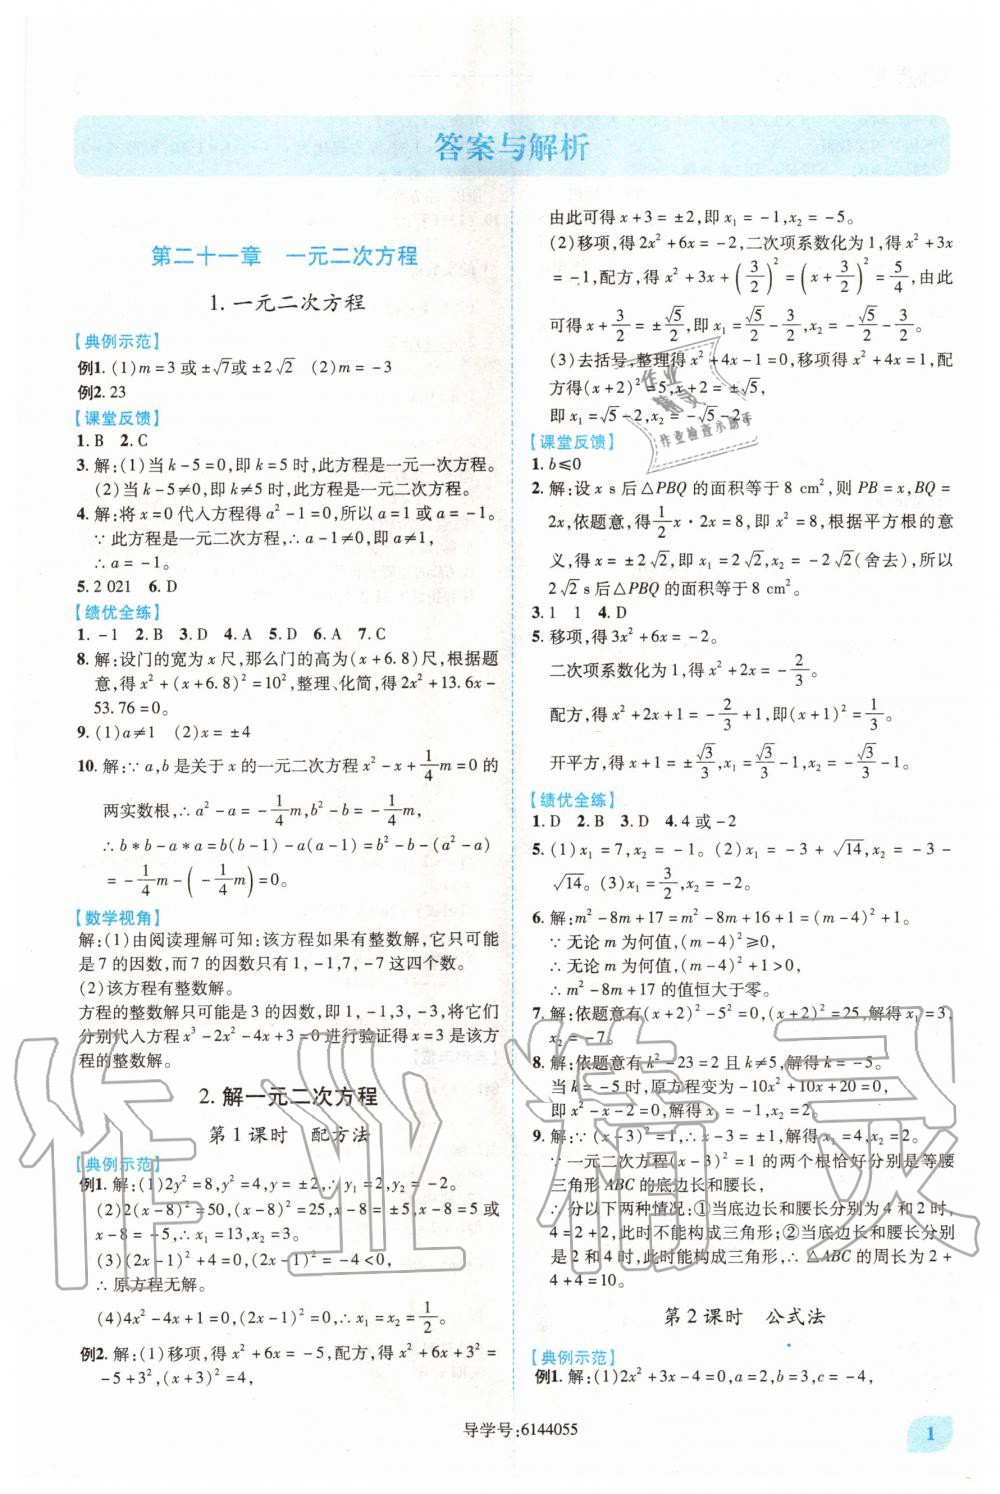 答案与解析
第二十一章　一元二次方程
1.一元二次方程
【典例示范】
例1. (1)m=3或±√7或±2√2　(2)m=-3
例2. 23
【课堂反馈】
1. B　2. C
3. 解:(1)当k-5=0,即k=5时,此方程是一元一次方程。
(2)当k-5≠0,即k≠5时,此方程是一元二次方程。
4. 解:将x=0代入方程得a²-1=0,所以a=1或a=-1。
∵此方程是一元二次方程,∴a-1≠0,即a≠1,
∴a=-1。
5. 2 021　6. D
【绩优全练】
1. -1　2. B　3. D　4. A　5. D　6. A　7. C
8. 解:设门的宽为x尺,那么门的高为(x+6.8)尺,根据题
意,得x²+(x+6.8)²=10²,整理、化简,得2x²+13.6x-
53.76=0。
9. (1)a≠1　(2)x=±4
10. 解:∵a,b是关于x的一元二次方程x²-x+1/4m=0的
两实数根,∴a²-a=-1/4m,b²-b=-1/4m,
∴b*b-a*a=b(b-1)-a(a-1)=b²-b-(a²-a)
=-1/4m-(-1/4m)=0。
【数学视角】
解:(1)由阅读理解可知:该方程如果有整数解,它只可能
是7的因数,而7的因数只有1,-1,7,-7这四个数。
(2)该方程有整数解。
方程的整数解只可能是3的因数,即1,-1,3,-3,将它们
分别代入方程x³-2x²-4x+3=0进行验证得x=3是该方
程的整数解。
2.解一元二次方程
第1课时　配方法
【典例示范】
例1. 解:(1)2y²=8,y²=4,y=±2,∴y₁=2,y₂=-2。
(2)2(x-8)²=50,(x-8)²=25,x-8=±5,x-8=5或
x-8=-5,∴x₁=13,x₂=3。
(3)(2x-1)²+4=0,(2x-1)²=-4<0,
∴原方程无解。
(4)4x²-4x+1=0,(2x-1)²=0,∴x₁=x₂=1/2。
例2. 解:(1)移项,得x²+6x=-5,配方,得x²+6x+3²=
-5+3²,(x+3)²=4,
由此可得x+3=±2,即x₁=-1,x₂=-5。
(2)移项,得2x²+6x=-2,二次项系数化为1,得x²+3x
=-1,配方,得x²+3x+(3/2)²=(x+3/2)²=5/4,由此
可得x+3/2=±√5/2,即x₁=√5/2-3/2,x₂=-√5/2-3/2。
(3)去括号,整理得x²+4x-1=0,移项得x²+4x=1,配
方得(x+2)²=5,x+2=±√5,
即x₁=√5-2,x₂=-√5-2。
作业
精灵
作业检查小助手
【课堂反馈】
1. b≤0
2. 解:设x s后△PBQ的面积等于8 cm²,则PB=x,BQ=
2x,依题意,得1/2x·2x=8,即x²=8,根据平方根的意
义,得x=±2√2,即x₁=2√2,x₂=-2√2(舍去),所以
2√2 s后△PBQ的面积等于8 cm²。
3. 1　1　4. D
5. 移项,得3x²+6x=-2。
二次项系数化为1,得x²+2x=-2/3。
配方,得x²+2x+1=-2/3+1,即(x+1)²=1/3。
开平方,得x+1=±√3/3,x₁=√3/3-1,x₂=-√3/3-1。
【绩优全练】
1. D　2. B　3. D　4. 4或-2
5. (1)x₁=7,x₂=-1。(2)x₁=-3+√14,x₂=-3-
√14。(3)x₁=3/2,x₂=-4。
6. 解:m²-8m+17=m²-8m+16+1=(m-4)²+1。
∵无论m为何值,(m-4)²≥0,
∴无论m为何值,(m-4)²+1>0,
∴m²-8m+17的值恒大于零。
7. 解:依题意有(x+2)²-5²=0,(x+2)²=25,解得x₁=3,
x₂=-7。
8. 解:依题意有k²-23=2且k≠5,解得k=-5。
当k=-5时,原方程变为-10x²+10x=3-1,
即x²-x=-0.2,
9. 解:∵(x-3)²=1,∴x-3=±1,∴x₁=4,x₂=2。
∵一元二次方程(x-3)²=1的两个根恰好分别是等腰
三角形ABC的底边长和腰长,
∴分以下两种情况:①当底边长和腰长分别为4和2时,
4=2+2,此时不能构成三角形;②当底边长和腰长分别
是2和4时,此时能构成三角形,∴△ABC的周长为2+
4+4=10。
第2课时　公式法
【典例示范】
例1. 解:(1)2x²+3x-4=0,a=2,b=3,c=-4,
作业精灵
导学号:6144055
1